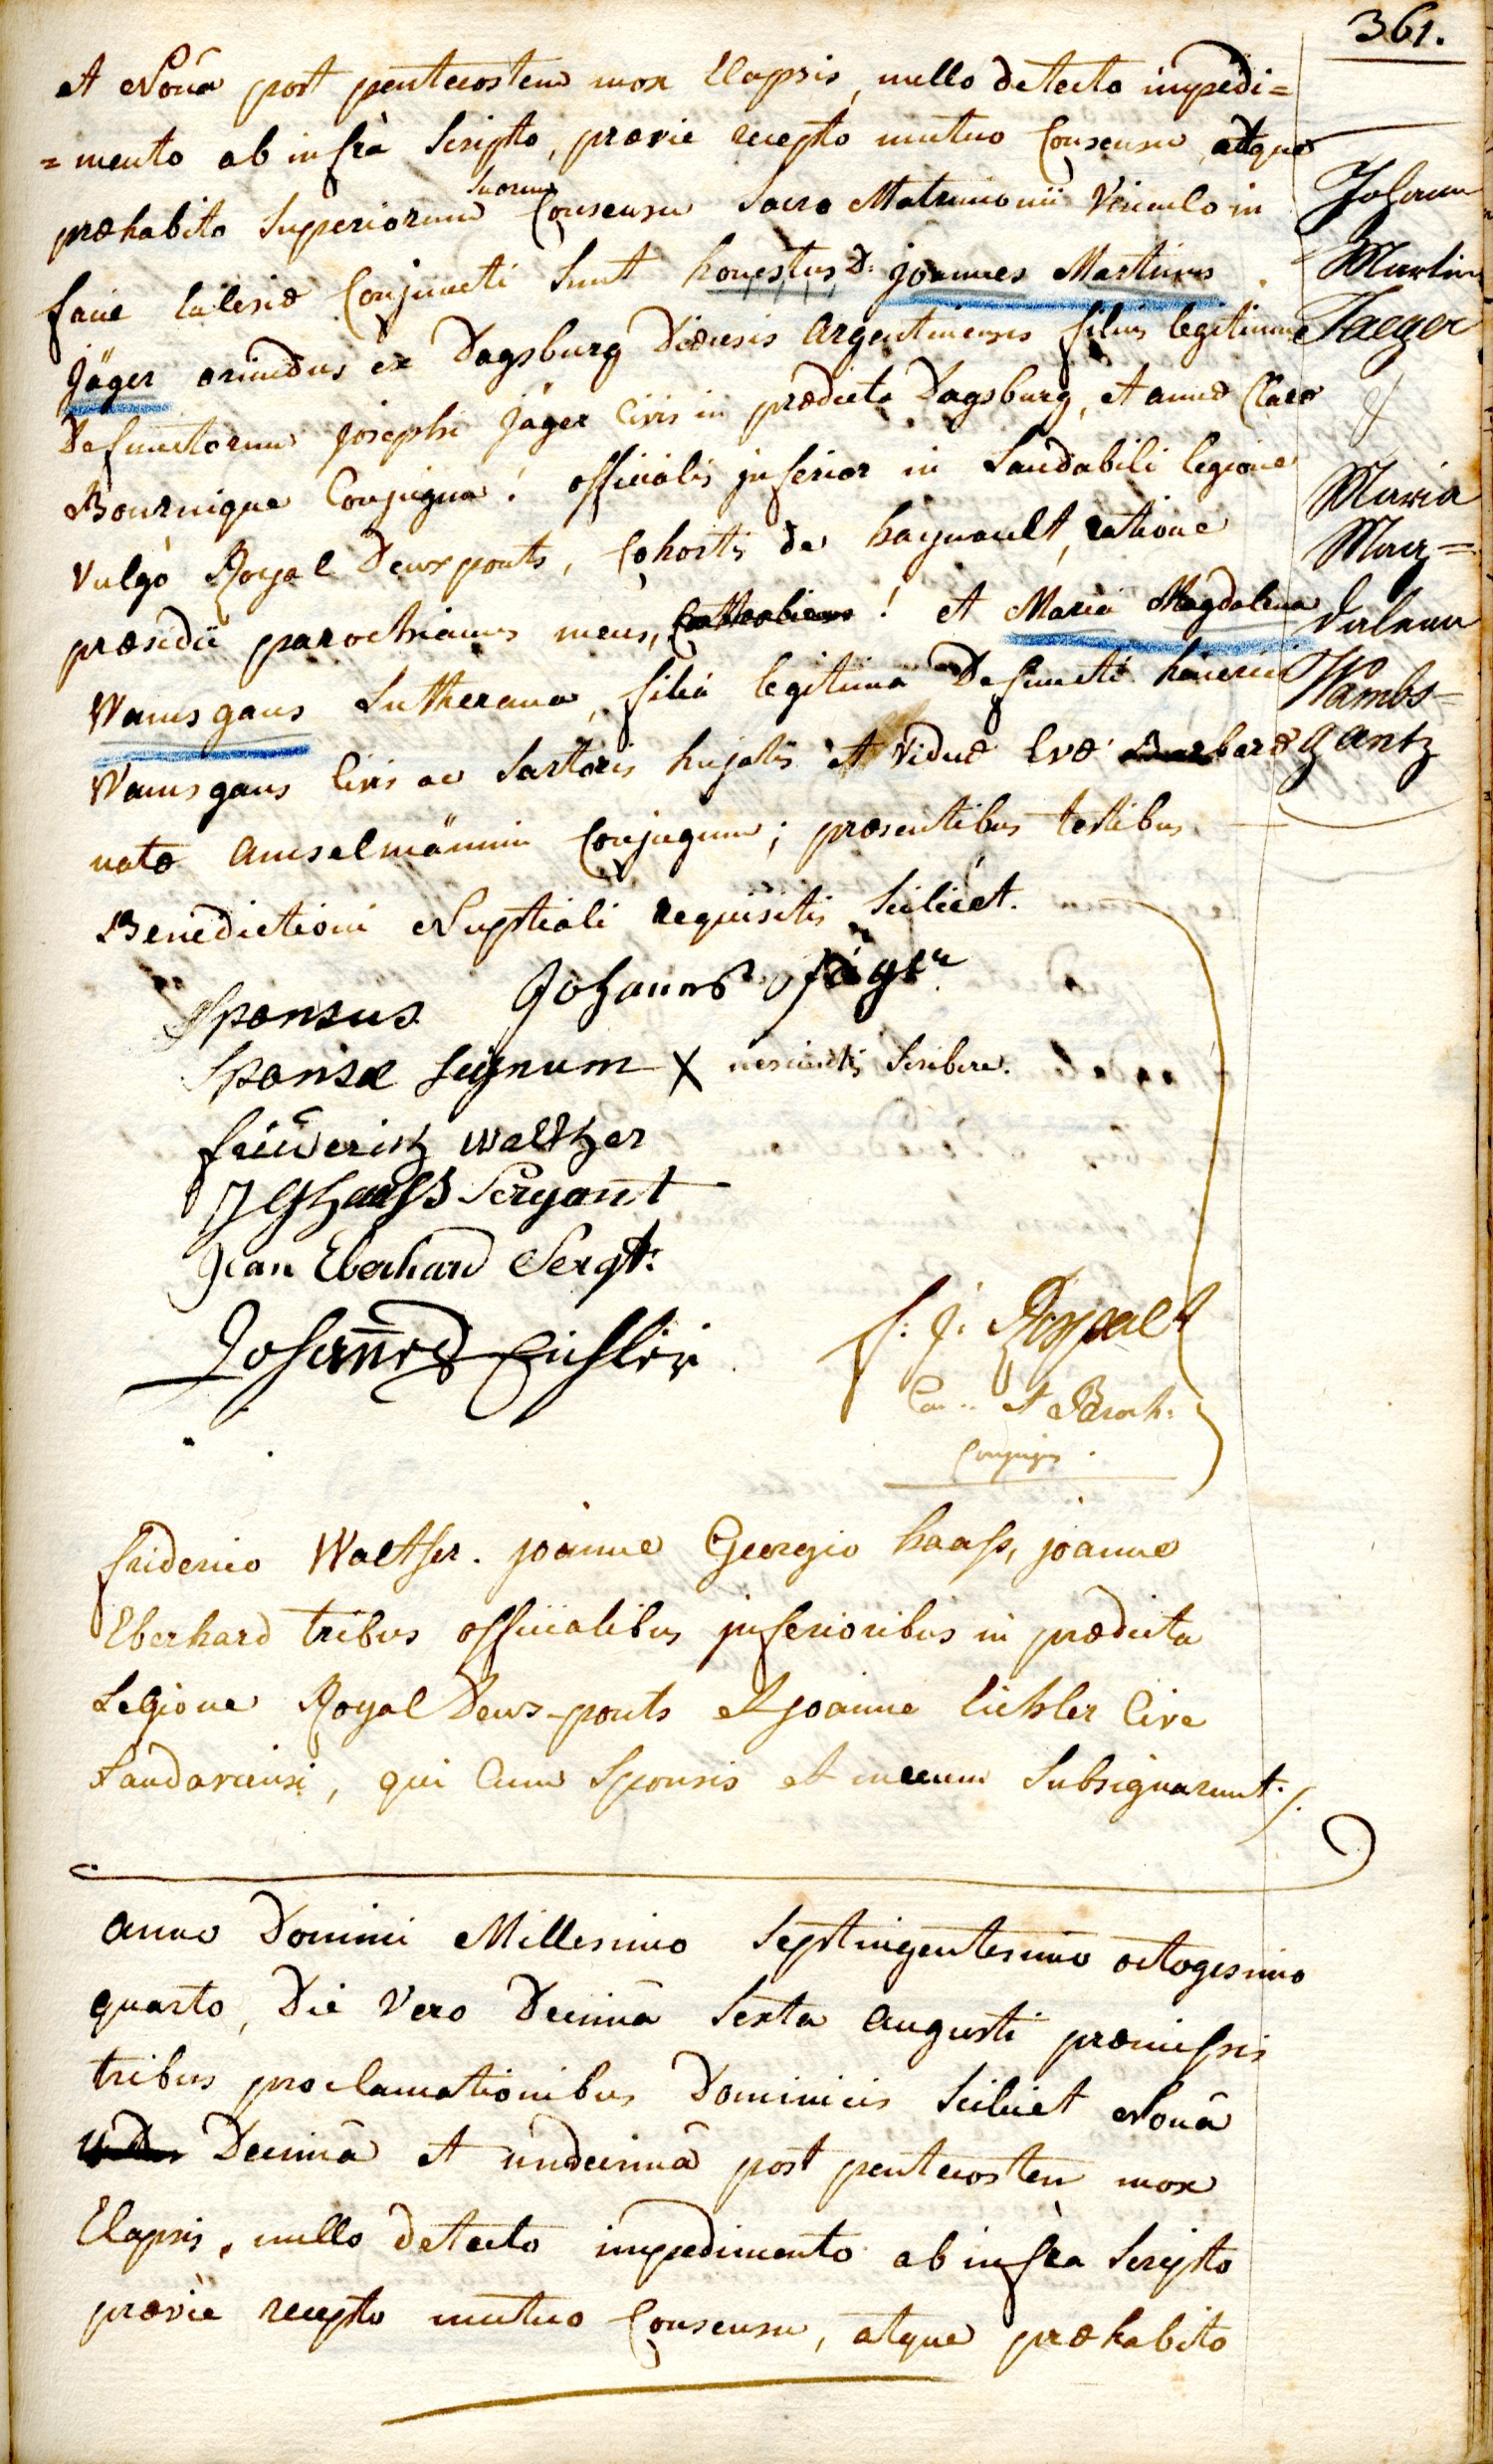 361.
et Nonâ post pentecosten mox Elapsis, nullo detecto impedi=
=mento ab infrà Scripto, prævie recepto mutuo Consensu, atque
præhabito Superiorum Suorum Consensu Sacro Matrimonii Vinculo in
facie Ecclesiæ Conjuncti Sunt honestus D: joannes Martinus
Jäger oriundus ex Dagsburg Diœcesis Argentinensis filius legitimus
Defunctorum josephi Jäger Civis in prædicta Dagsburg, et annæ Claræ
Bournique Conjugum! officialis inferior in Laudabili legione
Vulgò Royal Deuxponts, Cohortis de haynault, ratione
præsidii parochianus meus, ! et Maria Magdalena
Wamsgans Lutherana, filia legitima Defuncti henrici
Wamsgans Civis ac Sartoris hujatis et Viduæ Evæ Barbaræ
natæ Amselmännin Conjugum; præsentibus testibus
Benedictioni Nuptiali requisitis Scilicet.
Johann
Martin
Jaeger
&
Maria
Mag=
dalena
Wambs=
gantz
Sponsus Johannes Jäger
Sponsæ Signum X nescientis Scribere.
friderich waltzer
J G Haaß Sergant
Jean Eberhard Sergt:
Johannes Eichler
f: j: Roppelt
Can: et Paroch:
friderico Walther. joanne Georgio haaß, joanne
Eberhard tribus officialibus inferioribus in prædicta
Legione Royal Deux-ponts et joanne Eichler Cive
Landaviensi, qui Cum Sponsis et mecum Subsignarunt./.
Anno Domini Millesimo Septingentesimo octogesimo
quarto, Die Vero Decimâ Sexta Augusti præmissis
tribus proclamationibus Dominicis Scilicet Nonâ
Decimâ et undecimâ post pentecosten mox
Elapsis, nullo detecto impedimento ab infra Scripto
prævie recepto mutuo Consensu, atque præhabito